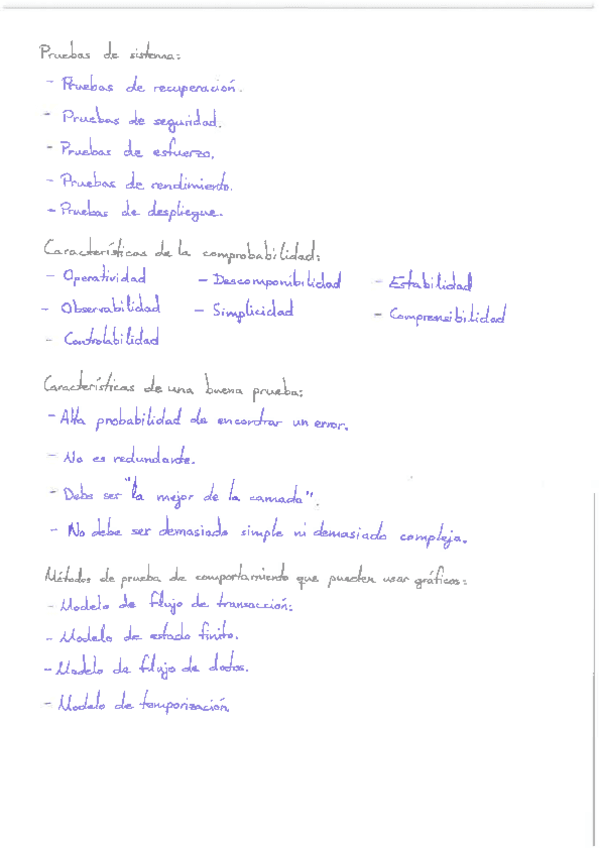 Pruebas de sistema:
- Pruebas de recuperación.
- Pruebas de seguridad.
- Pruebas de esfuerzo.
- Pruebas de rendimiento.
- Pruebas de despliegue.
Características de la comprobabilidad:
- Operatividad - Descomponibilidad - Estabilidad
- Observabilidad - Simplicidad - Comprensibilidad
- Controlabilidad
Características de una buena prueba:
- Alta probabilidad de encontrar un error.
- No es redundante.
- Debe ser "la mejor de la camada".
- No debe ser demasiado simple ni demasiado compleja.
Métodos de prueba de comportamiento que pueden usar gráficos:
- Modelo de flujo de transacción.
- Modelo de estado finito.
- Modelo de flujo de datos.
- Modelo de temporización.